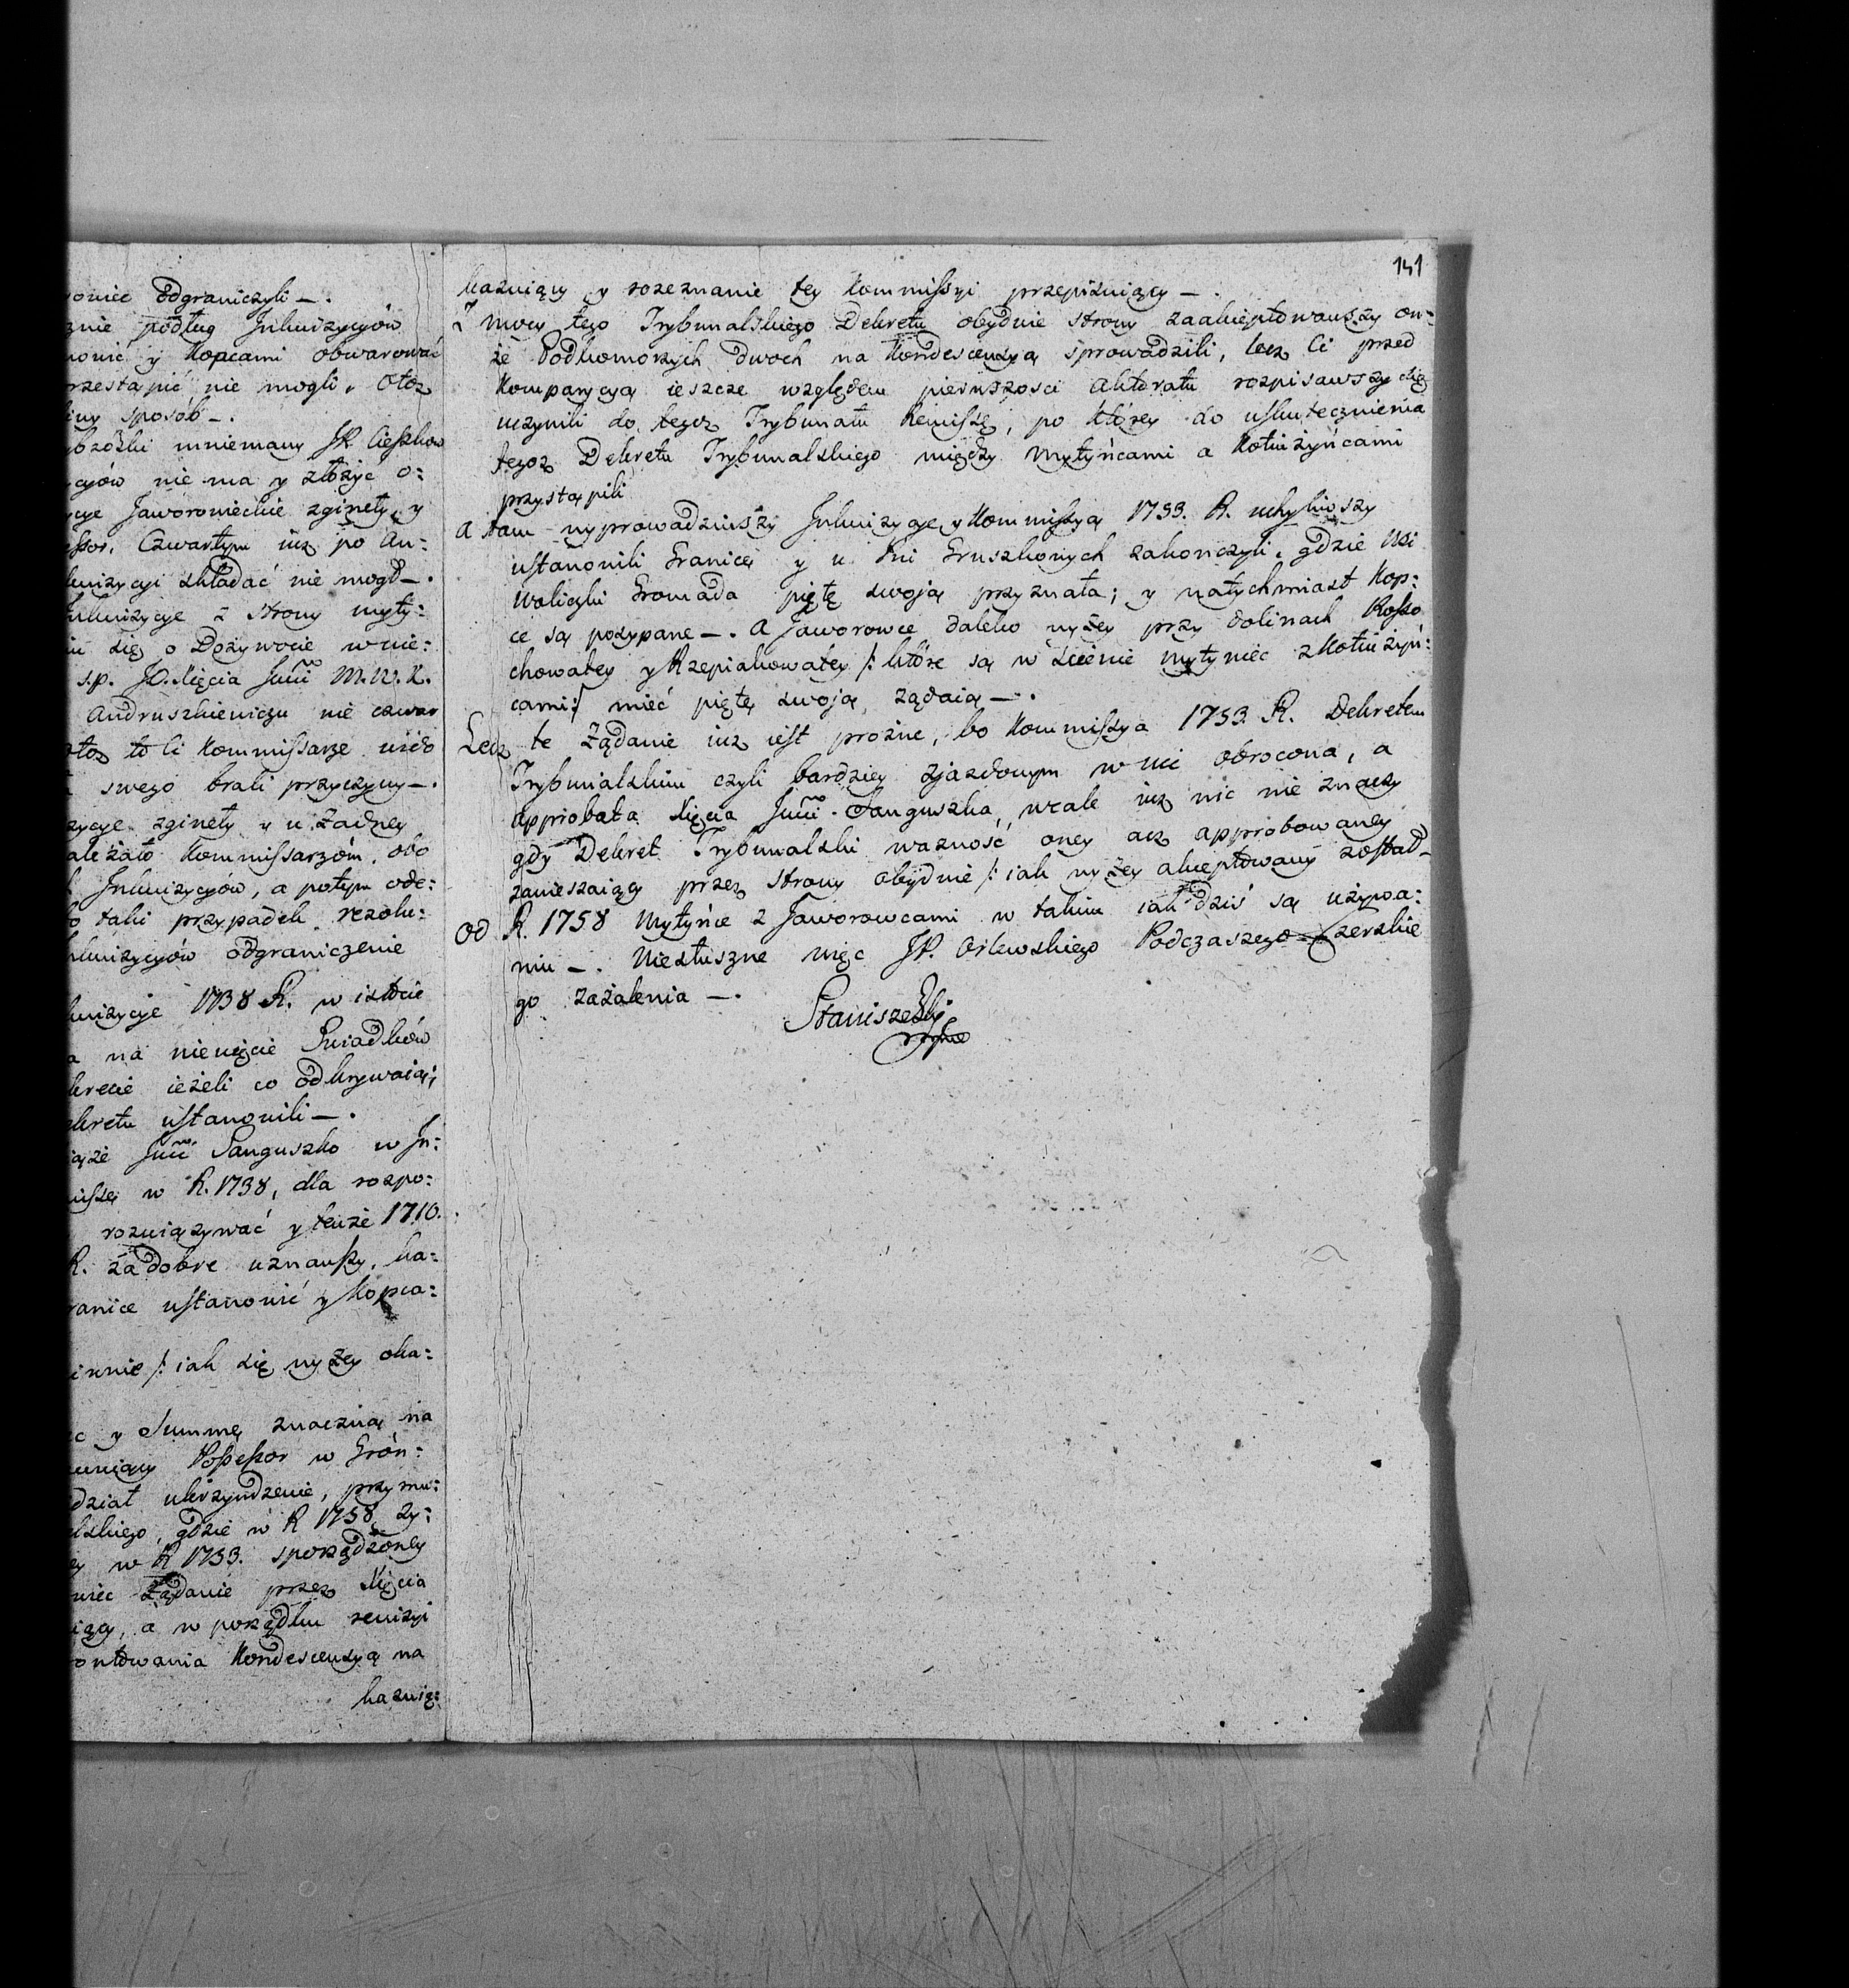 oniec odgraniczyli —.
znie podług Inkwizycyów
onic y Kopcami obwarować
rzestąpić nie mogli. Otoż
iny sposób —.
mniemany JP. Cieszkow
cyów nie ma y złożyć o:
ycye Jaworowieckie zginęły, y
essor. Czwartym iuż po An:
kwizycyi składać nie mogł —.
nkwizycye z strony myty:
się o Dożywocie wnie:
s.p. JO. Xięcia Jmci M. W. X.
Andruszkiewiczu nie czwar
otoż to Ci Kommissarze wido
swego brali przyczyny —.
zycye zginęły y u żadney
ależało Kommissarzóm, obo
Inkwizycyów, a potym ode:
o taki przypadek rezolu:
nkwizycyów odgraniczenie
kwizycye 1738 R. w istocie
a na niewięcie Swiadków
krecie ieżeli co odkrywaią;
ekretu ustanowili —.
iąże Jmć Sanguszko w In:
missę w R. 1738, dla rozpo:
rozwiązywać y teuże 1710.
R. zadobre uznawszy, ka:
ranice ustanowić y Kopca:
innie /: iak się wyżey oka:
c y Summę znaczną na
Possessor w Gron:
dział ukrzywdzenie, przymu:
alskiego, gdzie w R 1758 zy:
ey w R 1733. sporządzoney
wiec Żądanie przez Xięcia
iący, a w porządku rewizyi
ontowania Kondescensyą na
kazuią:
141
kazuiący y rozeznanie tey Kommissyi przepisuiący —.
Z mocy tego Trybunalskiego Dekretu obydwie strony zaakceptowawszy on:
że Podkomorzych dwoch na Kondescensyą sprowadzili, lecz Ci przed
Komparycyą ieszcze względem pierwszosci Aktoratu rozpisawszy się
uczynili do tegoż Trybunału Remissę, po ktorey do uskutecznienia
tegoż Dekretu Trybunalskiego między Mytyńcami a Kotiużyńcami
przystąpili
A tam wyprowadziwszy Inkwizycye, y Kommissyą 1733. R. uchyliwszy
ustanowili Granicę y u Pni Gruszkowych zakończyli, gdzie Wsi
Woliczki Gromada piętę swoią przyznała; y natychmiast Kop:
ce są posypane —. A Jaworowce daleko wyżey przy dolinach Rosso
chowatey y Rzepiakowatey /: które są w Scienie Mytyniec z Kotiużyń:
cami :/ mieć piętę swoią żądaią —.
Lecz te Żądanie iuż iest prożne, bo Kommissya 1733 R. Dekretem
Trybunalskim czyli bardziey zjazdowym w nic obrocona, a
approbata Xięcia Jmci Sanguszka, wcale iuż nic nie znaczy
gdy Dekret Trybunalski ważność oney acz approbowaney
zawieszaiący przez strony obydwie /: iak wyżey akceptowany został —
Od R. 1758 Mytyńce z Jaworowcami w takim iak dziś są używa:
niu —. Niesłuszne więc JP. Orlewskiego Podczaszego Czerskie
go zażalenia —.
Staniszewski